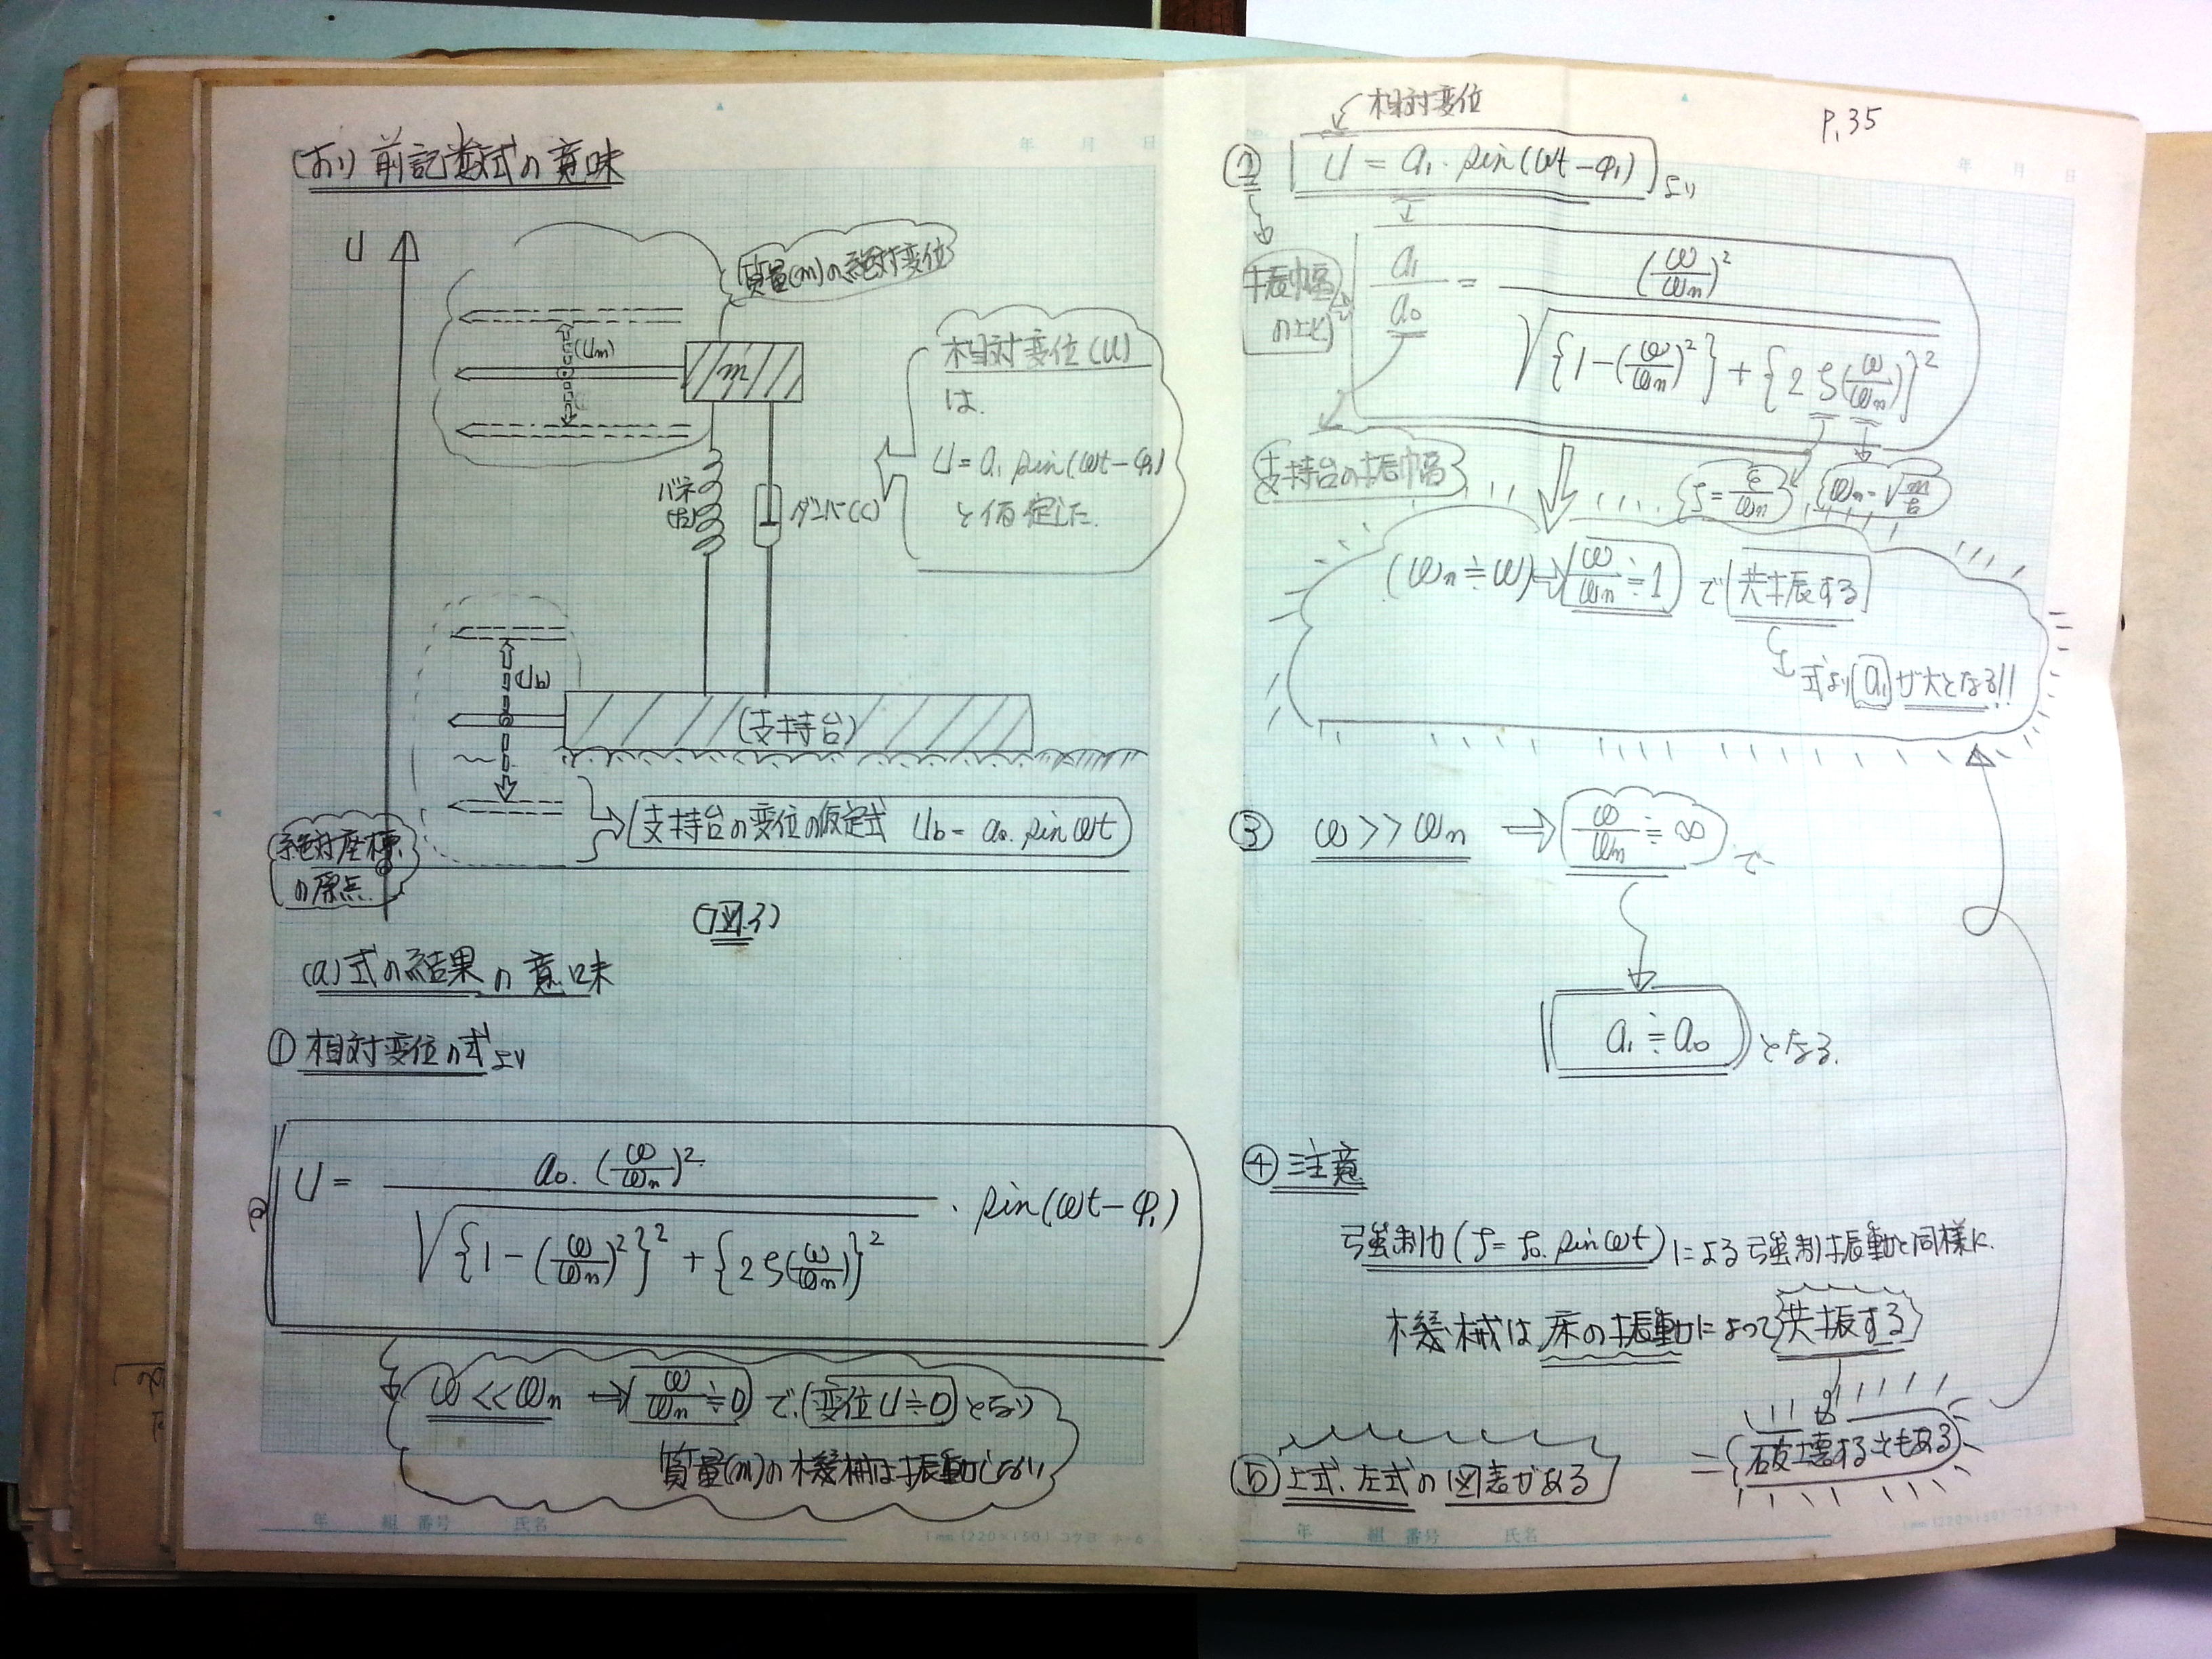 前記数式の意味
U
質量(m)の絶対変位
(Um)
m
相対変位(U)
は、
U = a₁ sin(ωt−φ₁)
と仮定した。
バネ
ダンパ(c)
(Ub)
(支持台)
支持台の変位の仮定式 Ub = a₀. sin ωt
絶対座標
の原点
(図.3)
(a)式の結果の意味
① 相対変位の式より
U = a₀. (ω/ωn)² / √{1−(ω/ωn)²}² + {2ζ(ω/ωn)}² . sin(ωt−φ₁)
ω << ωn ⇒ ω/ωn ≒ 0 で、(変位U≒0)となり
質量(m)の機械は振動しない
P.35
相対変位
② U = a₁. sin(ωt−φ₁) より
振幅
の比
a₁/a₀ = (ω/ωn)² / √{1−(ω/ωn)²} + {2ζ(ω/ωn)}²
支持台の振幅
ζ = ε/ωn
(ωn≒ω) ⇒ ω/ωn ≒ 1 で 共振する
式より a₁ が大となる!!
③ ω >> ωn ⇒ ω/ωn ≒ ∞ で
a₁ ≒ a₀ となる.
④ 注意
強制力(f = f₀. sin ωt)による強制振動と同様に.
機械は床の振動によって共振する
= 破壊することもある
⑤ 上式、左式の図表がある
年 組 番号 氏名
年 組 番号 氏名